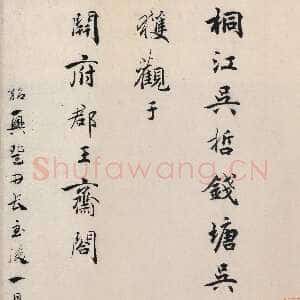 桐江吳哲錢塘吳
獲觀于
開府郡王齋閣
紹興癸丑長至後一日
Shufawang.CN